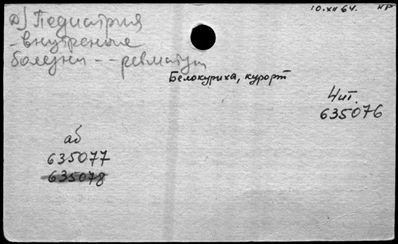 10.XII 64. кр
д) Педиатрия
- внутренние
болезни -- ревматизм
Белокуриха, курорт
Чит.
635076
аб
635077
635078